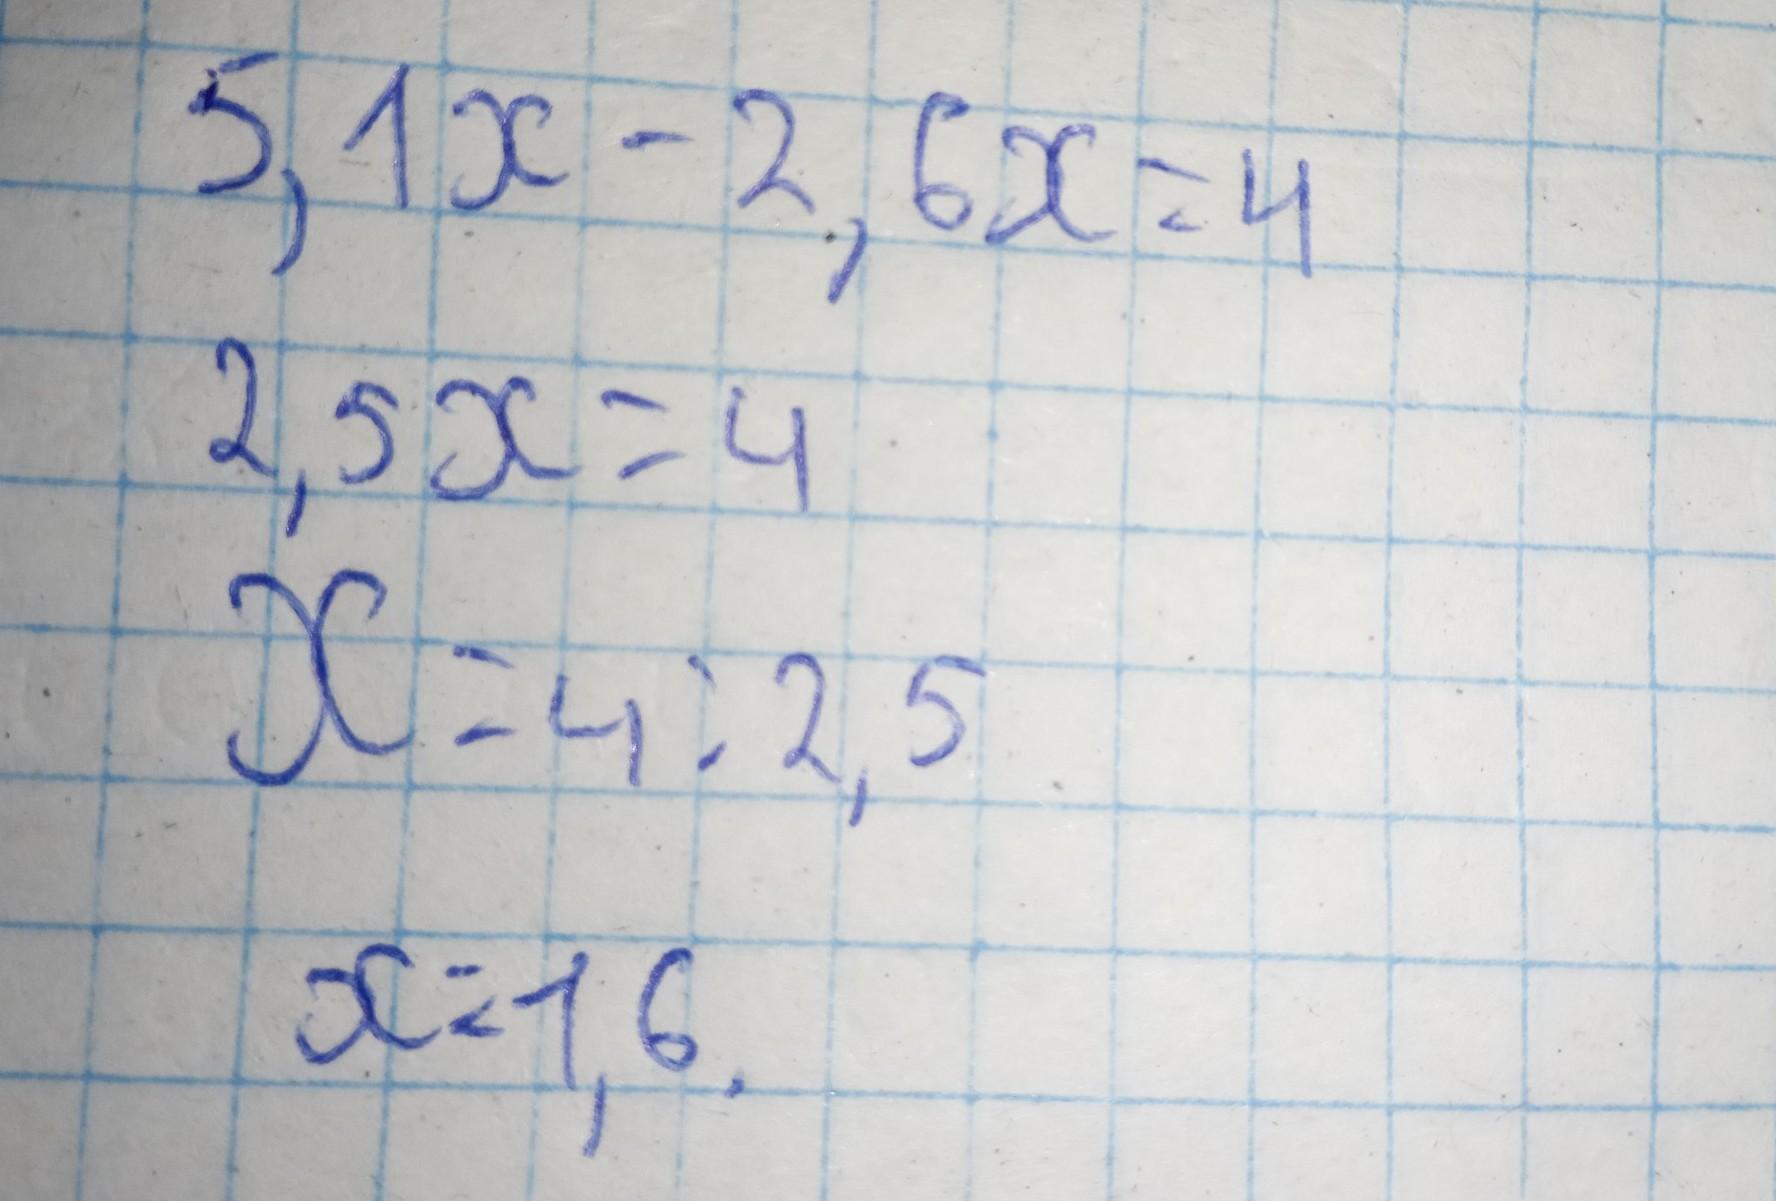 5,1x - 2,6x = 4
2,5x = 4
x = 4 : 2,5
x = 1,6.